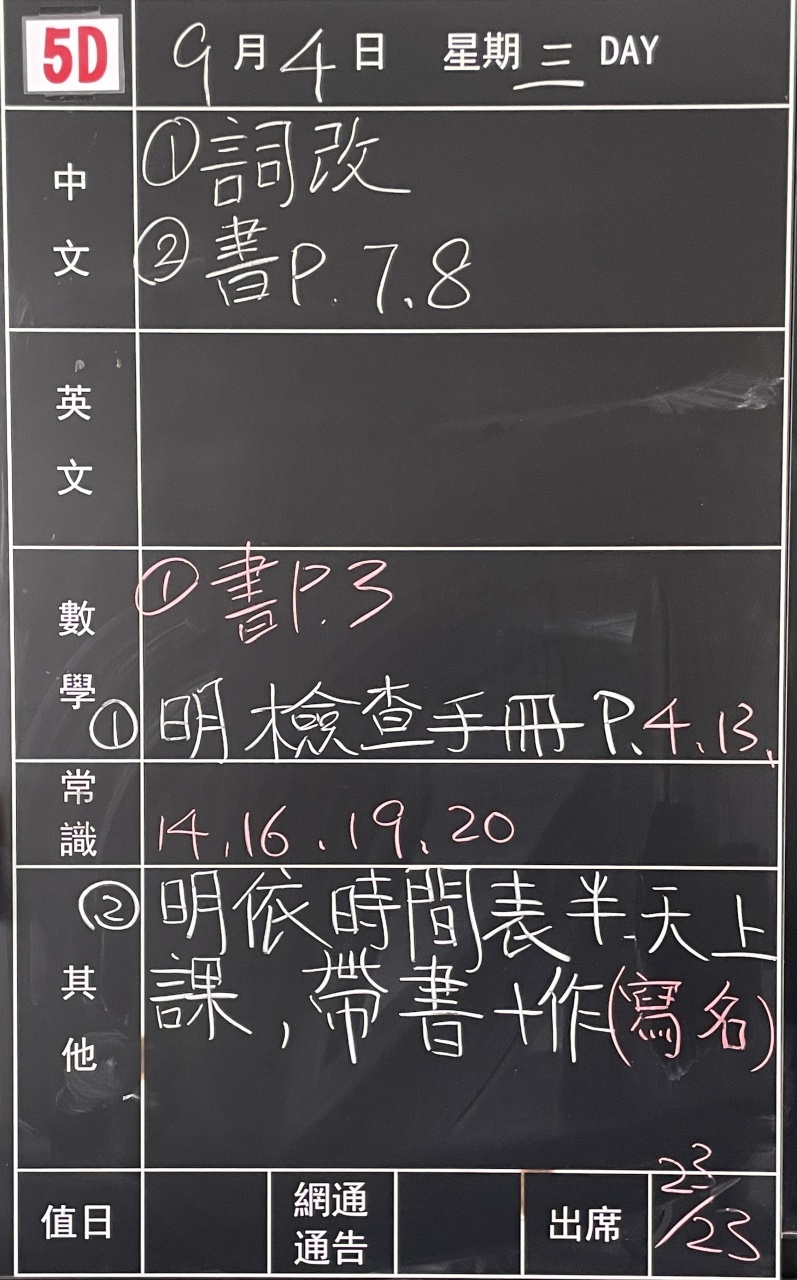 5D 9月4日 星期三 DAY
中文
①詞改
②書P.7、8
英文
數學
①書P.3
①明檢查手冊P.4、13、
常識
14、16、19、20
其他
②明依時間表半天上
課，帶書+作(寫名)
值日
網通
通告
出席
23/23